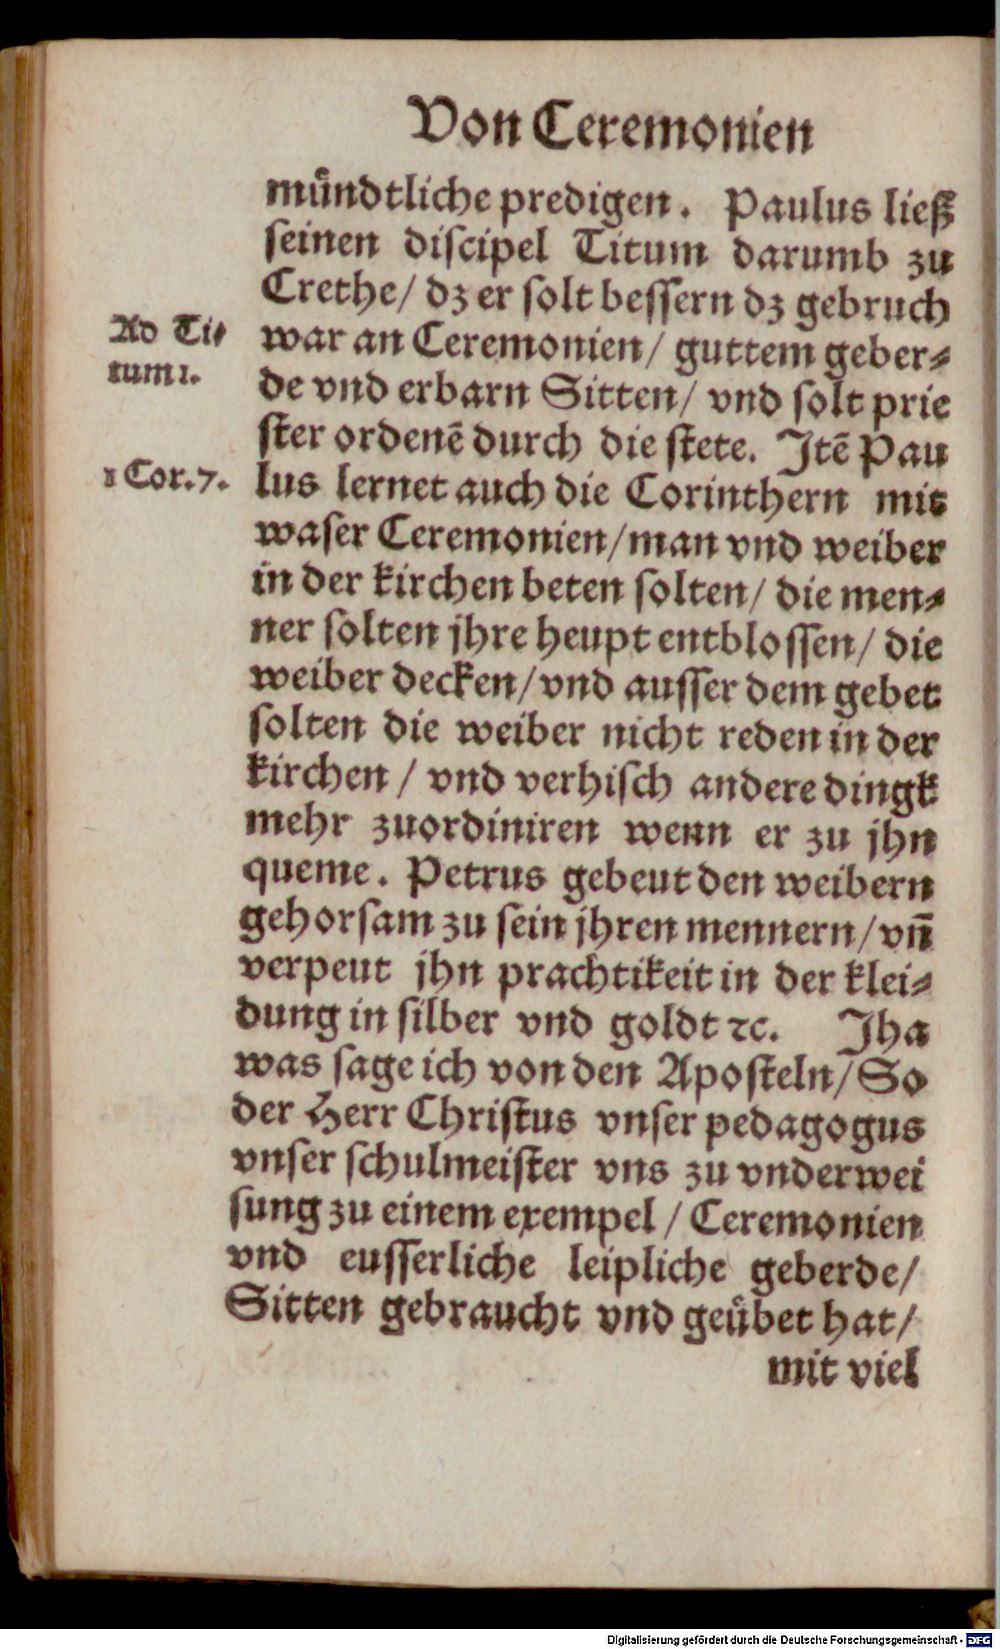 Von Ceremonien
mündtliche predigen. Paulus ließ
seinen discipel Titum darumb zu
Crethe/ dz er solt bessern dz gebruch
Ad Ti⸗
war an Ceremonien/ guttem geber⸗
tum 1.
de vnd erbarn Sitten/ vnd solt prie
ster ordenē durch die stete. Itē Pau
1 Cor. 7.
lus lernet auch die Corinthern mit
waser Ceremonien/ man vnd weiber
in der kirchen beten solten/ die men⸗
ner solten jhre heupt entblossen/ die
weiber decken/ vnd ausser dem gebet
solten die weiber nicht reden in der
kirchen / vnd verhisch andere dingk
mehr zuordiniren wenn er zu jhn
queme. Petrus gebeut den weibern
gehorsam zu sein jhren mennern/ vñ
verpeut jhn prachtikeit in der klei⸗
dung in silber vnd goldt ꝛc. Jha
was sage ich von den Aposteln/ So
der Herr Christus vnser pedagogus
vnser schulmeister vns zu vnderwei
sung zu einem exempel / Ceremonien
vnd eusserliche leipliche geberde/
Sitten gebraucht vnd geübet hat/
mit viel
Digitalisierung gefördert durch die Deutsche Forschungsgemeinschaft - DFG